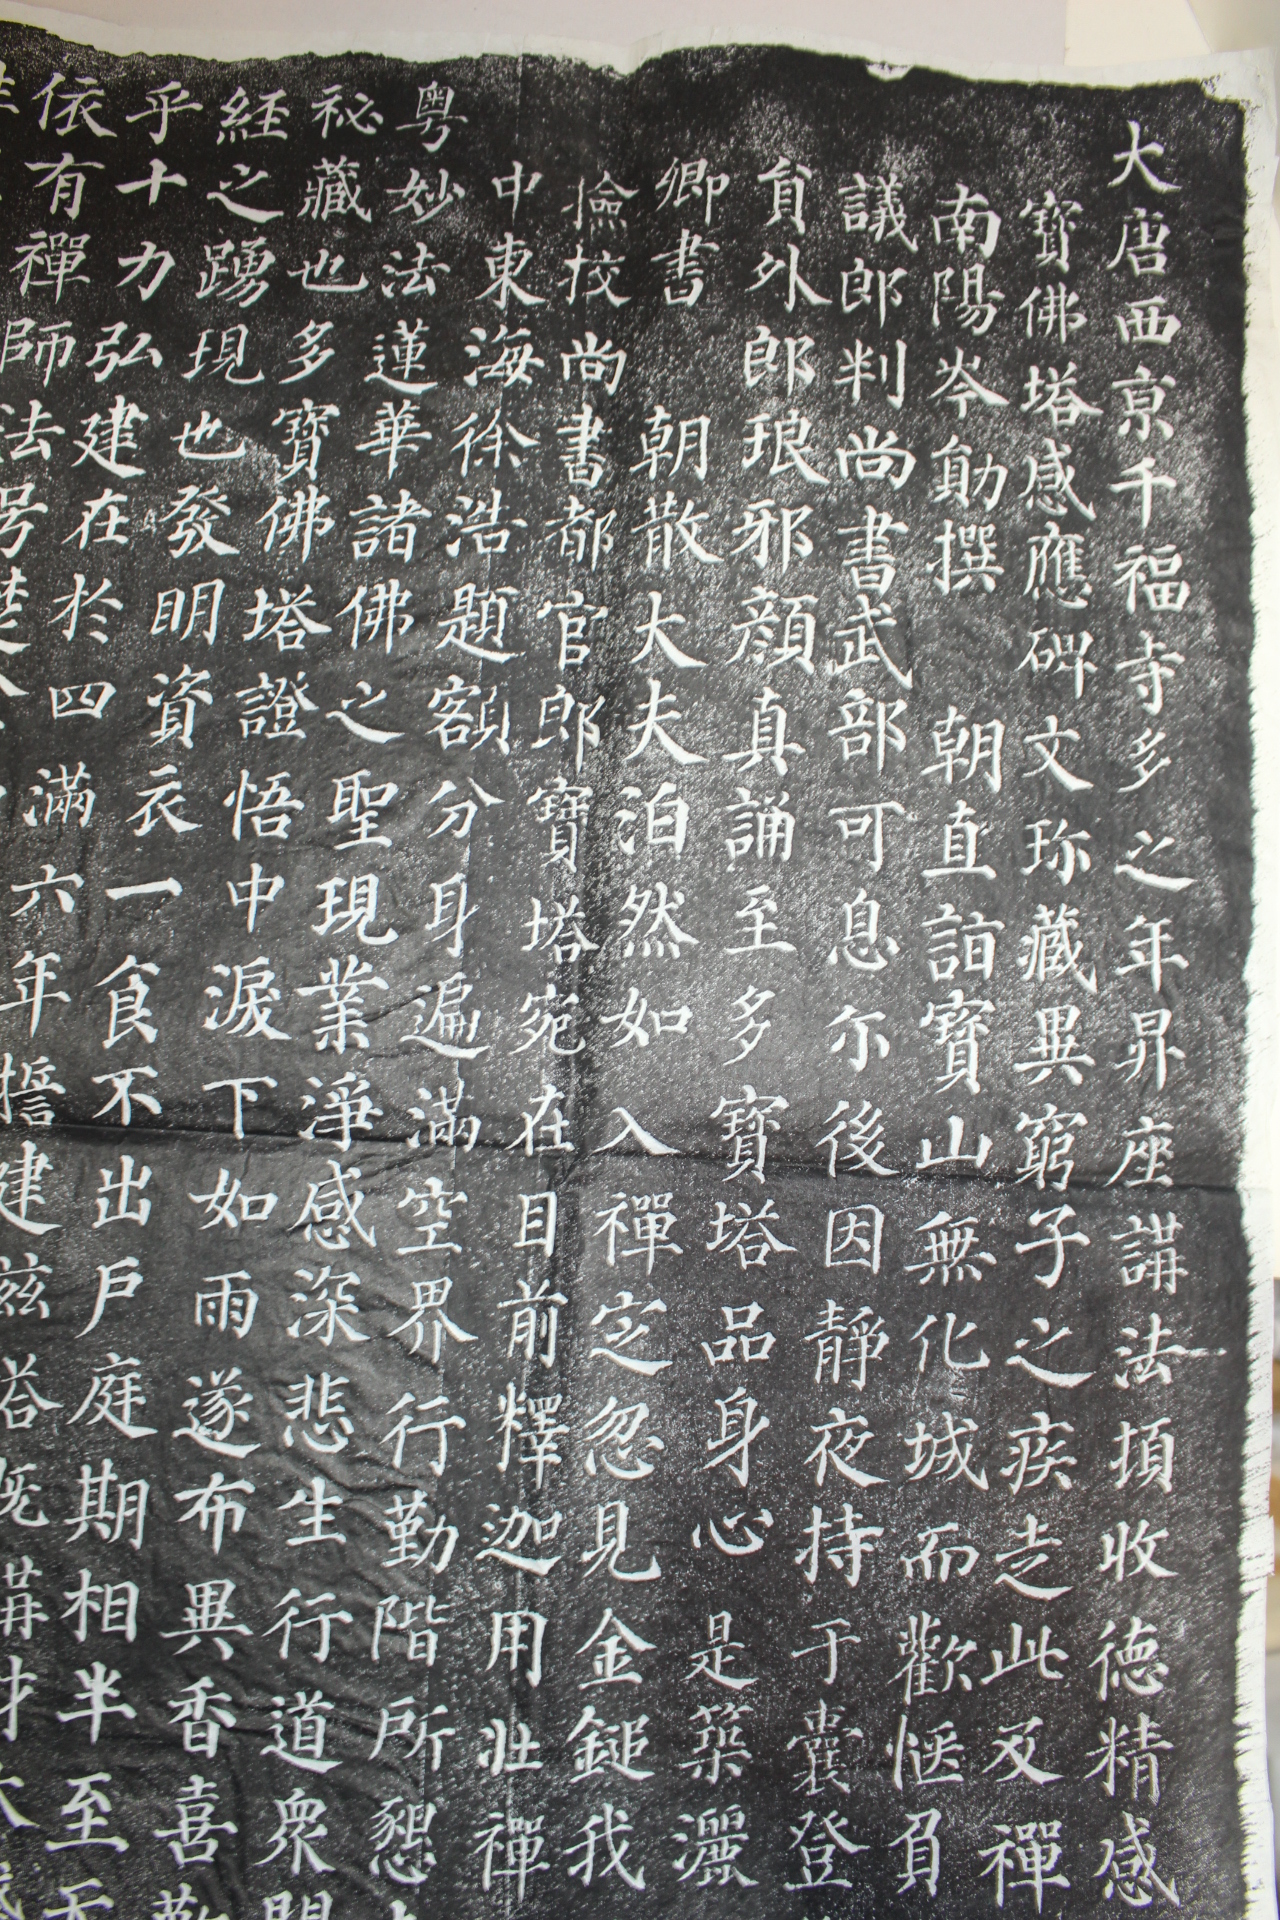 大唐西京千福寺多之年昇座講法頃收德精感
寶佛塔感應碑文珎藏異窮子之疾走此及禪
南陽岑勛撰　朝直詣寶山無化城而歡愜負
議郎判尚書武部可息尔後因靜夜持于囊登
貟外郎琅邪顏真誦至多寶塔品身心是築灑
卿書　朝散大夫泊然如入禪定忽見金鎚我
撿挍尚書都官郎寶塔宛在目前釋迦用壯禪
中東海徐浩題額分身遍滿空界行勤階所懇
粵妙法蓮華諸佛之聖現業淨感深悲生行道眾開
祕藏也多寶佛塔證悟中淚下如雨遂布異香喜勤
經之踴現也發明資衣一食不出戶庭期相半至无
乎十力弘建在於四滿六年誓建茲塔既講財
依有禪師法号楚